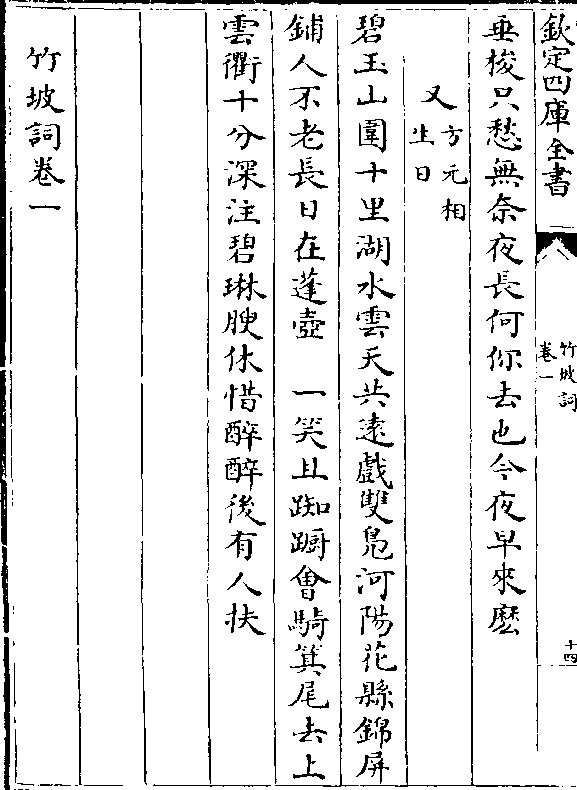 欽定四庫全書
竹坡詞
卷一
十四
垂梭只愁無奈夜長何你去也今夜早來麽
又方元相
生日
碧玉山圍十里湖水雲天共遠戲雙鳬河陽花縣錦屏
鋪人不老長日在蓬壺　一笑且踟蹰會騎箕尾去上
雲衢十分深注碧琳腴休惜醉醉後有人扶
竹坡詞卷一